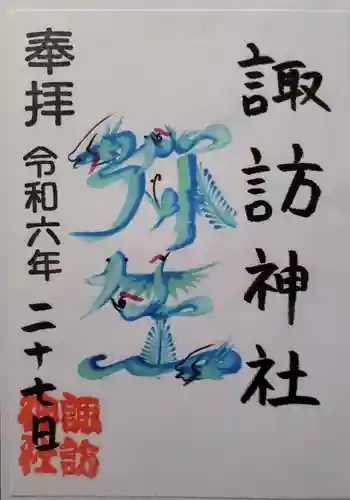 諏訪神社
弥生
奉拝
令和六年 二十七日
諏訪
神社